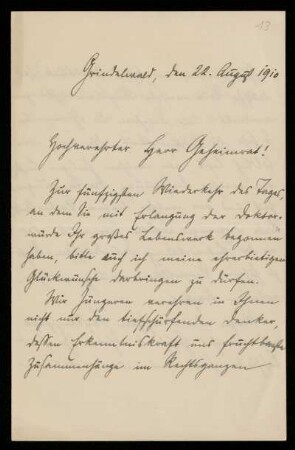 13
Grindelwald, den 22. August 1910
Hochverehrter Herr Geheimrat!
Zur fünfzigsten Wiederkehr des Tages,
an dem Sie mit Erlangung der Doktor-
würde Ihr großes Lebenswerk begonnen
haben, bitte auch ich meine ehrerbietigen
Glückwünsche darbringen zu dürfen.
Wir Jüngeren verehren in Ihnen
nicht nur den tiefschürfenden Denker,
dessen Erkenntniskraft uns fruchtbare
Zusammenhänge im Rechtsganzen